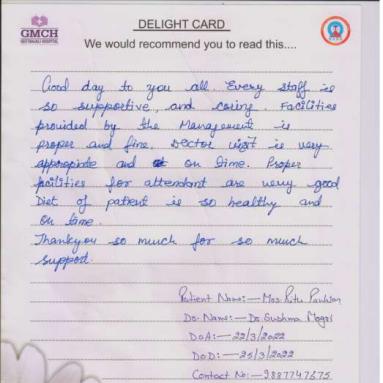 GMCH
DELIGHT CARD
We would recommend you to read this....
Good day to you all. Every staff is
so supportive, and caring. Facilities
provided by the Management is
proper and fine. Doctor visit is very
appropriate and on time. Proper
facilities for attendant are very good
Diet of patient is so healthy and
on time.
Thankyou so much for so much
support.
Patient Name:— Mrs. Ritu
Dr. Name:— Dr Sushma Mogri
DOA:— 22/3/2022
DOD:— 25/3/2022
Contact No:— 9887747675